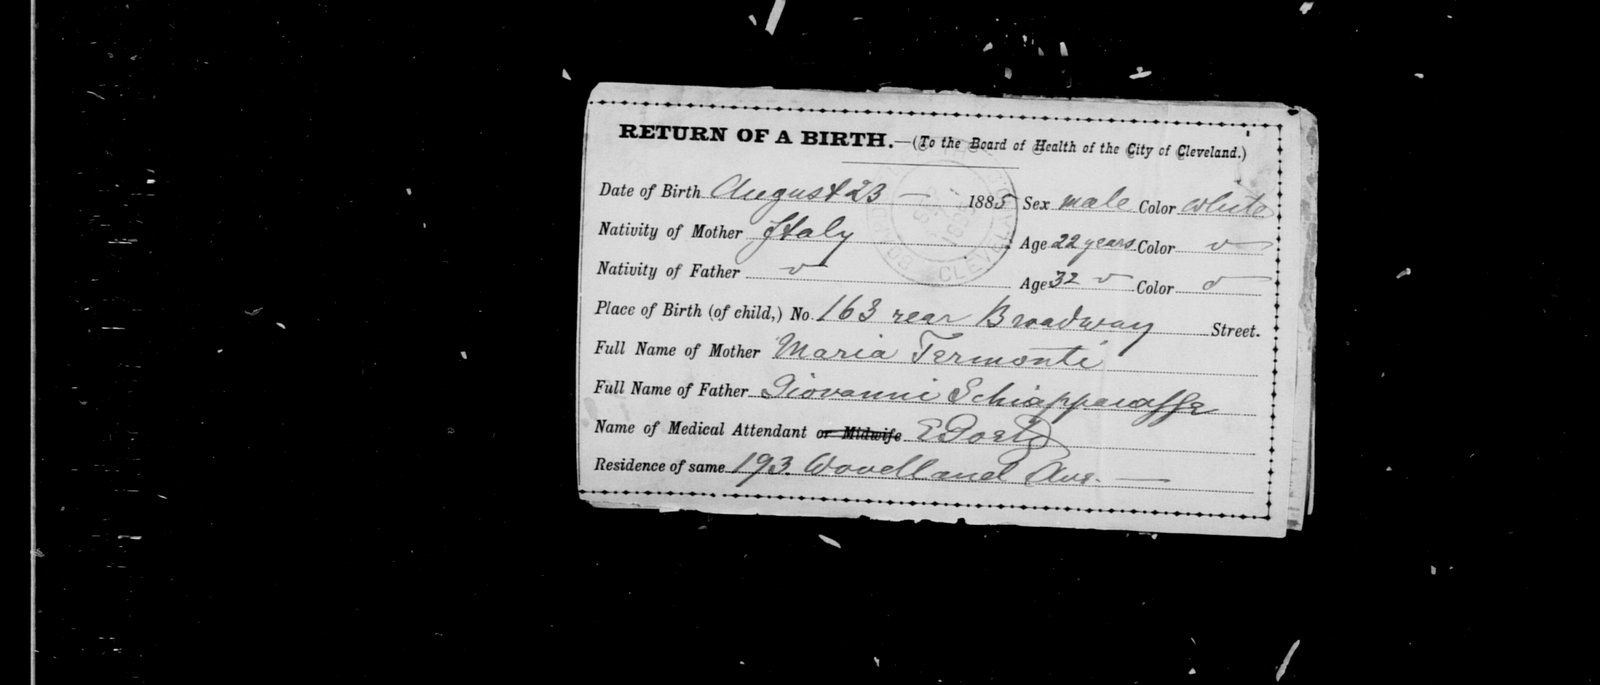 RETURN OF A BIRTH.—(To the Board of Health of the City of Cleveland.)
Date of Birth August 23 — 1885 Sex male Color white
Nativity of Mother Italy Age 22 years Color ✓
Nativity of Father ✓ Age 32 ✓ Color ✓
Place of Birth (of child,) No. 163 rear Broadway Street.
Full Name of Mother Maria Termonti
Full Name of Father Giovanni
Name of Medical Attendant or Midwife
Residence of same 193. Woodland Ave. —
CLEVELAND